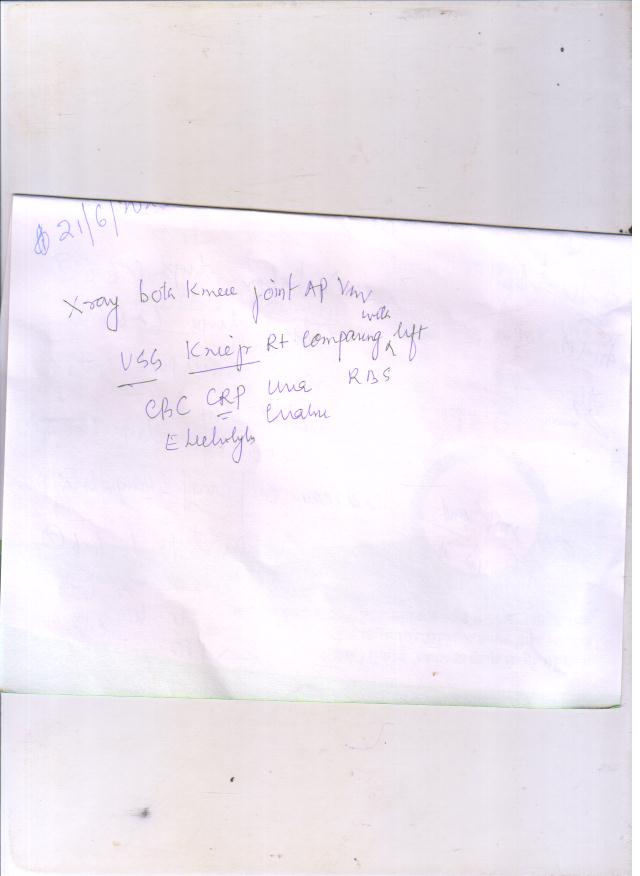 21/6/
X-ray both Knee joint AP View
with
USG Knee jt Rt comparing left
CBC CRP Urea RBS
Creatinine
Electrolytes